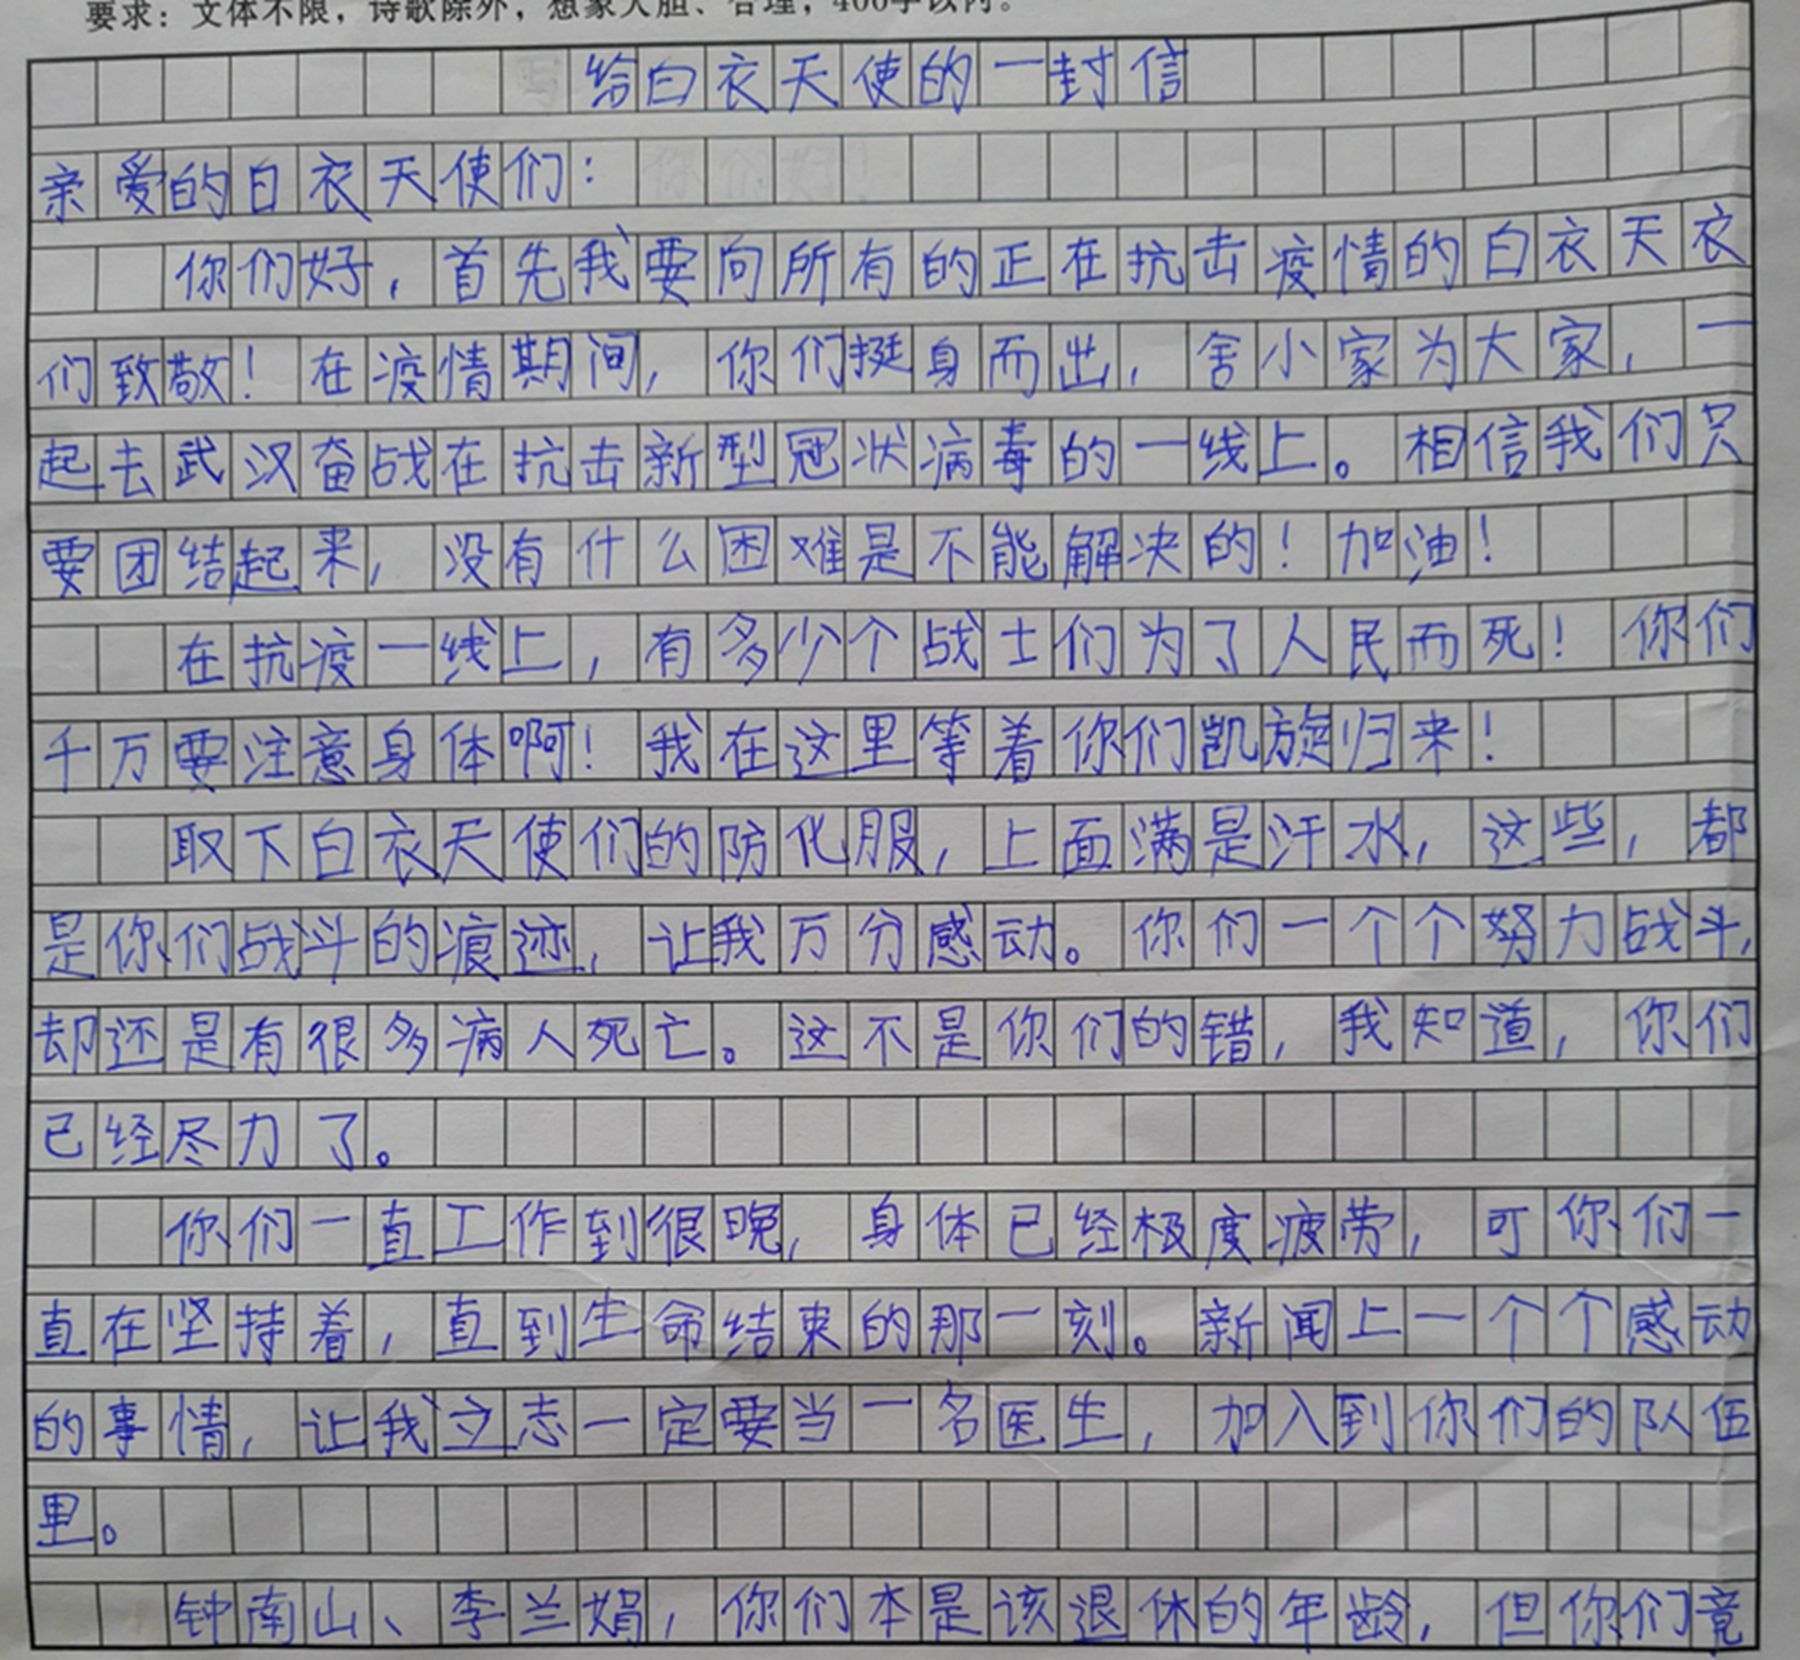 要求：文体不限，诗歌除外，想象大胆、合理，400字以内。
给白衣天使的一封信
亲爱的白衣天使们：
你们好，首先我要向所有的正在抗击疫情的白衣天衣
们致敬！在疫情期间，你们挺身而出，舍小家为大家，一
起去武汉奋战在抗击新型冠状病毒的一线上。相信我们只
要团结起来，没有什么困难是不能解决的！加油！
在抗疫一线上，有多少个战士们为了人民而死！你们
千万要注意身体啊！我在这里等着你们凯旋归来！
取下白衣天使们的防化服，上面满是汗水，这些，都
是你们战斗的痕迹，让我万分感动。你们一个个努力战斗，
却还是有很多病人死亡。这不是你们的错，我知道，你们
已经尽力了。
你们一直工作到很晚，身体已经极度疲劳，可你们一
直在坚持着，直到生命结束的那一刻。新闻上一个个感动
的事情，让我立志一定要当一名医生，加入到你们的队伍
里。
钟南山、李兰娟，你们本是该退休的年龄，但你们竟